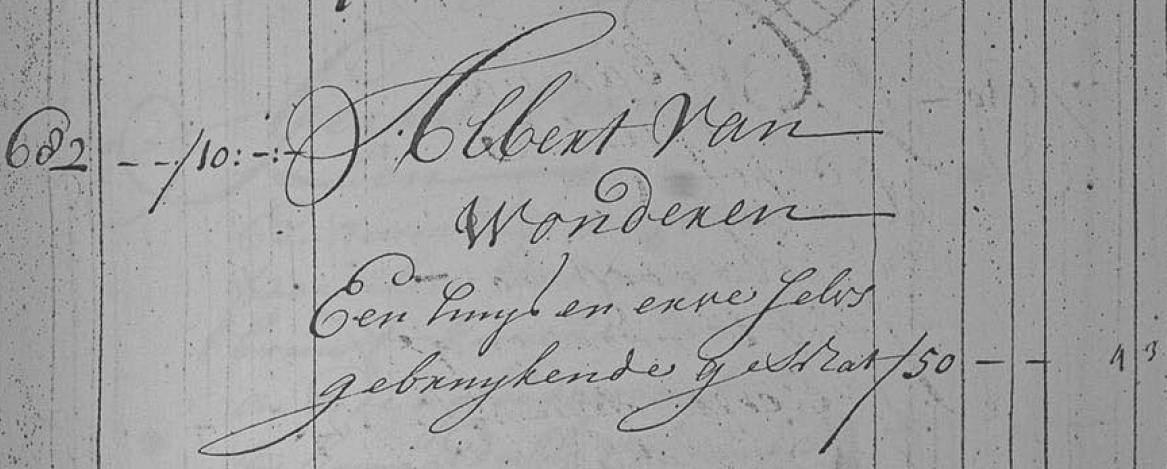 682 - - /10:-:- Abbert Van
Wonderen
Een huys en erve selvs
gebruykende gestelt /50 - -